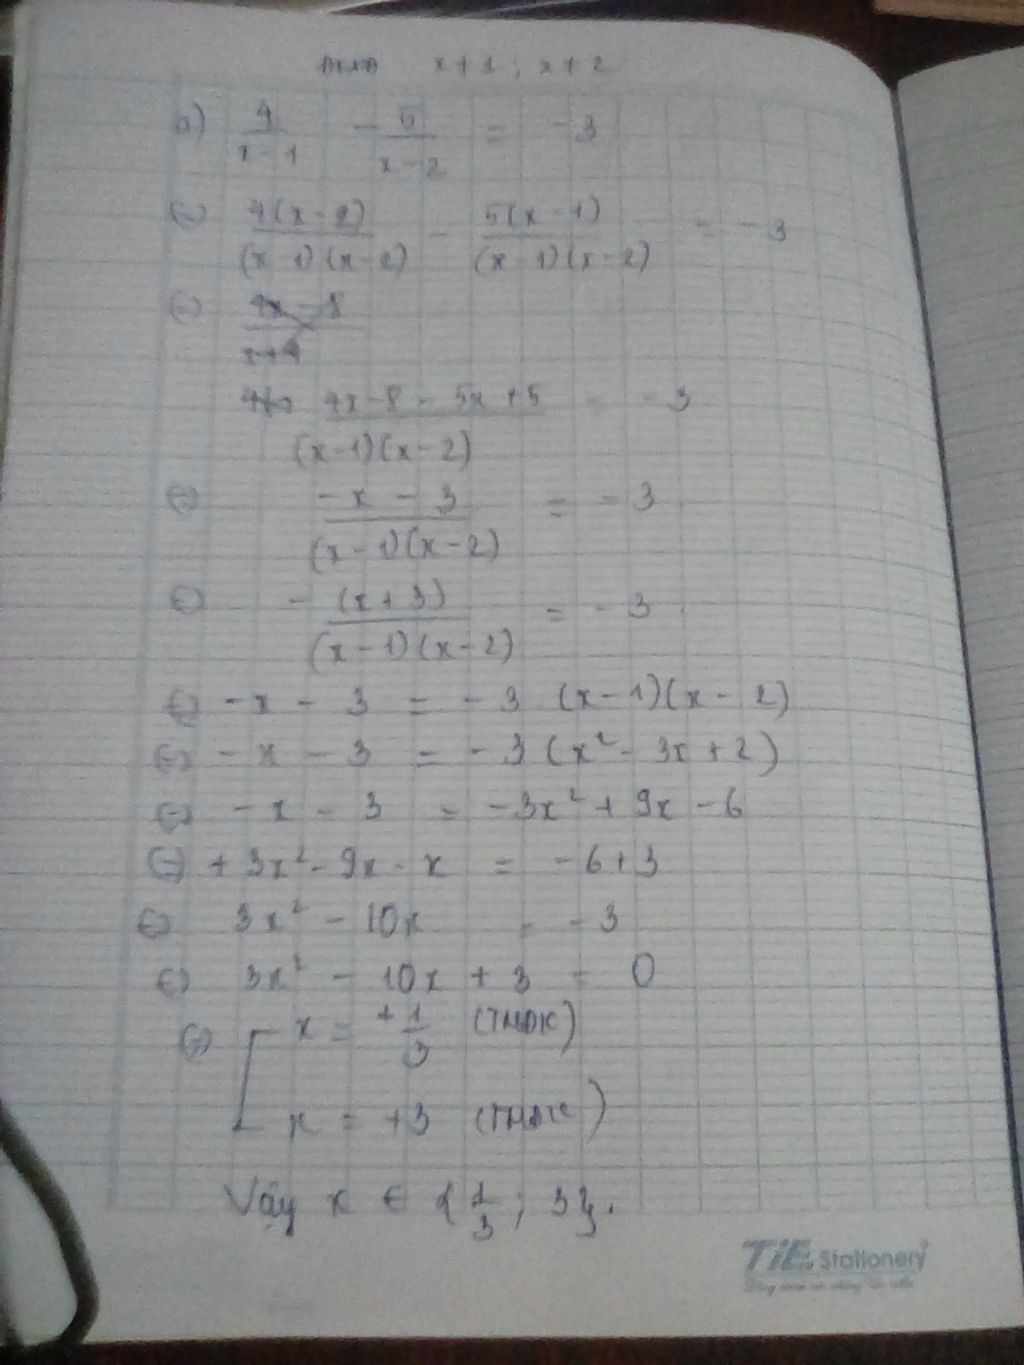 ĐKXĐ x ≠ 1 ; x ≠ 2
a) 4/(x-1) - 5/(x-2) = -3
(=) 4(x-2)/(x-1)(x-2) - 5(x-1)/(x-1)(x-2) = -3
(=) 4x-8
(=) 4x-8-5x+5/(x-1)(x-2) = -3
(=) -x-3/(x-1)(x-2) = -3
(=) -(x+3)/(x-1)(x-2) = -3
(=) -x-3 = -3(x-1)(x-2)
(=) -x-3 = -3(x²-3x+2)
(=) -x-3 = -3x²+9x-6
(=) +3x²-9x-x = -6+3
(=) 3x²-10x = -3
(=) 3x²-10x+3 = 0
(=) [ x = +1/3 (TMĐK)
x = +3 (TMĐK)
Vậy x ∈ {1/3; 3}.
TiE Stationery